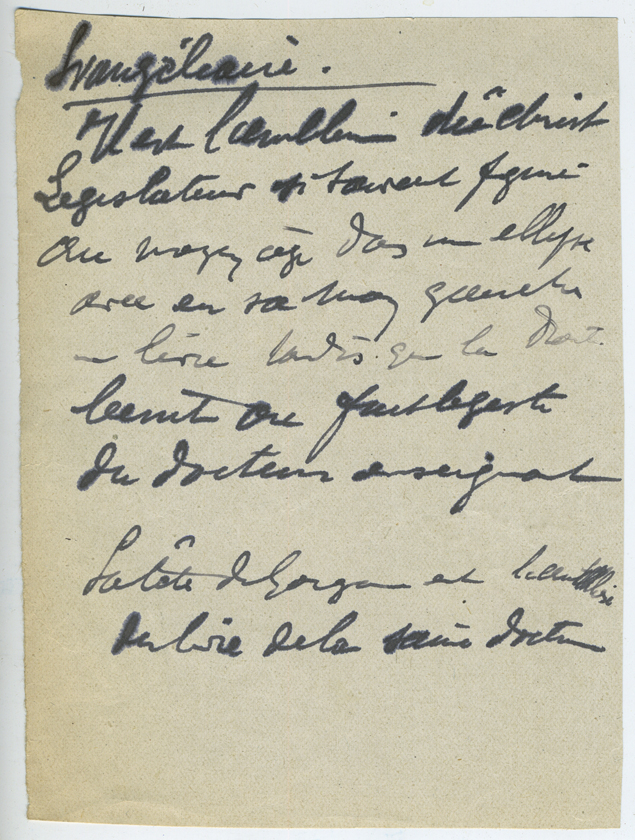 Evangéliaire.
Il est l'emblème du Christ
Législateur si souvent figuré
au moyen âge dans un ellipse
avec en sa main gauche
un livre tandis que la droite
bénit ou fait le geste
du docteur enseignant
La tête de Gorgone est
du livre de la saine doctrine